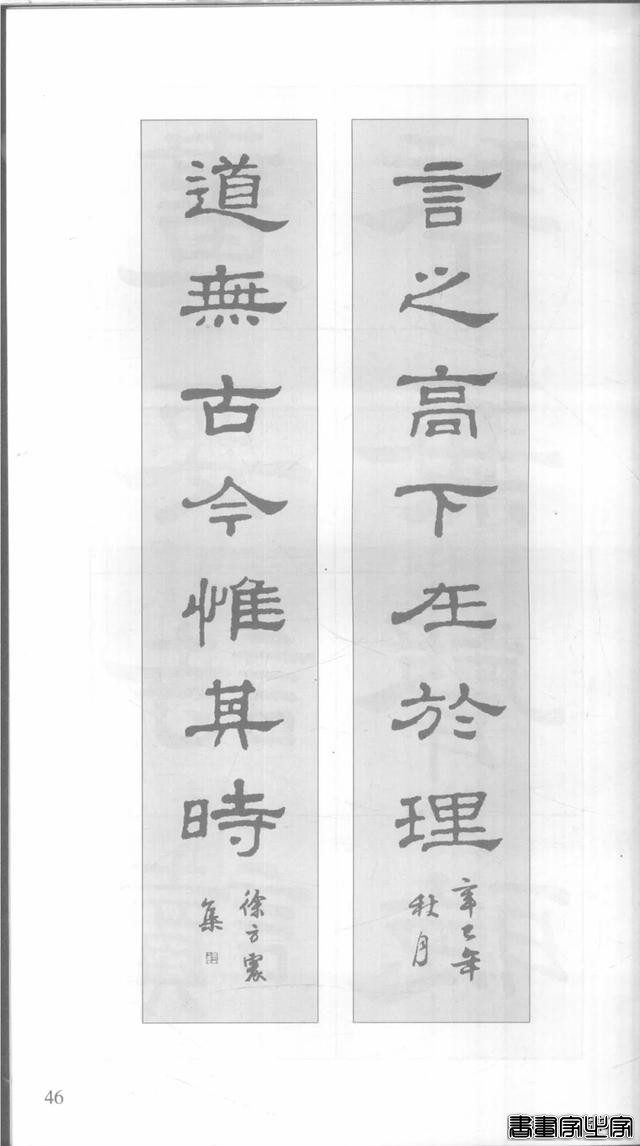 言之高下在於理
辛巳年
秋月
道無古今惟其時
徐方震
集
46
書畫字典字